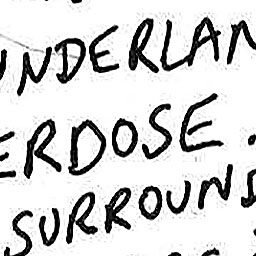 UNDERLAN
ERDOSE.
SURROUNS